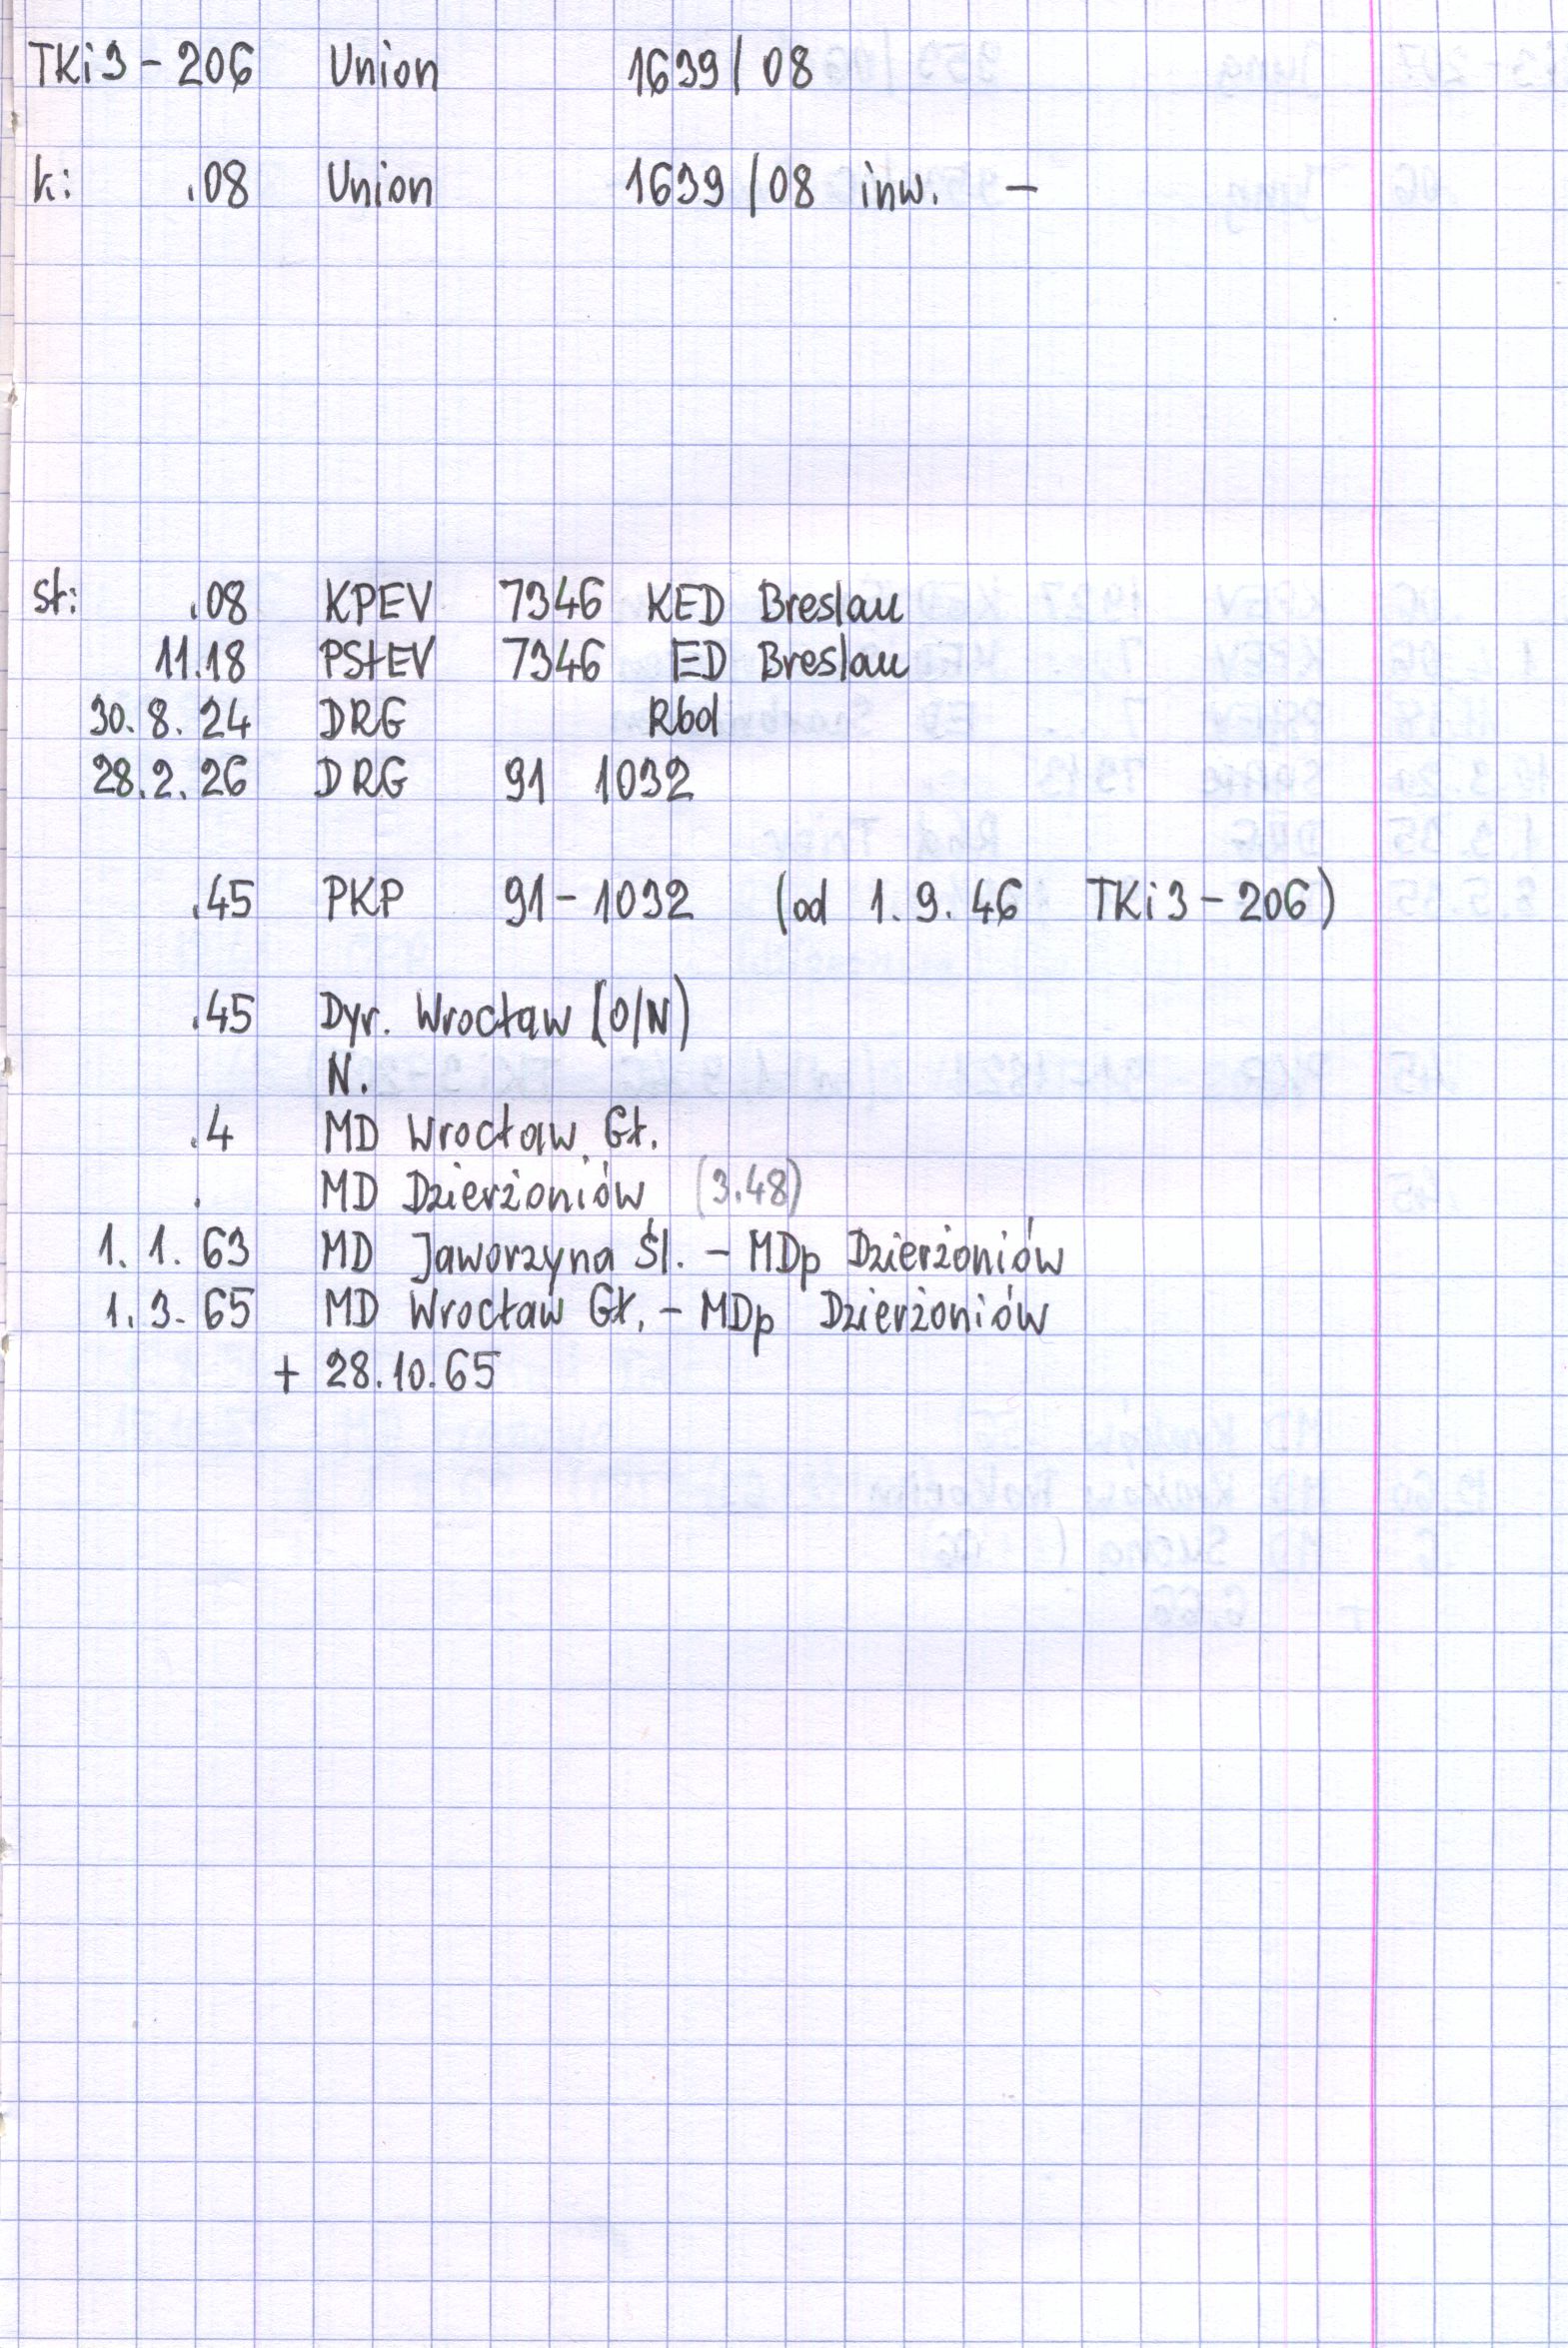 TKi3-206 Union 1639/08
k: .08 Union 1639/08 inw. -
st: .08 KPEV 7346 KED Breslau
11.18 PStEV 7346 ED Breslau
30.8.24 DRG Rbd
28.2.26 DRG 91 1032
.45 PKP 91-1032 (od 1.9.46 TKi3-206)
.45 Dyr. Wrocław (O/N)
N.
.4 MD Wrocław Gł.
. MD Dzierżoniów (3.48)
1.1.63 MD Jaworzyna Śl. - MDp Dzierżoniów
1.3.65 MD Wrocław Gł. - MDp Dzierżoniów
+ 28.10.65